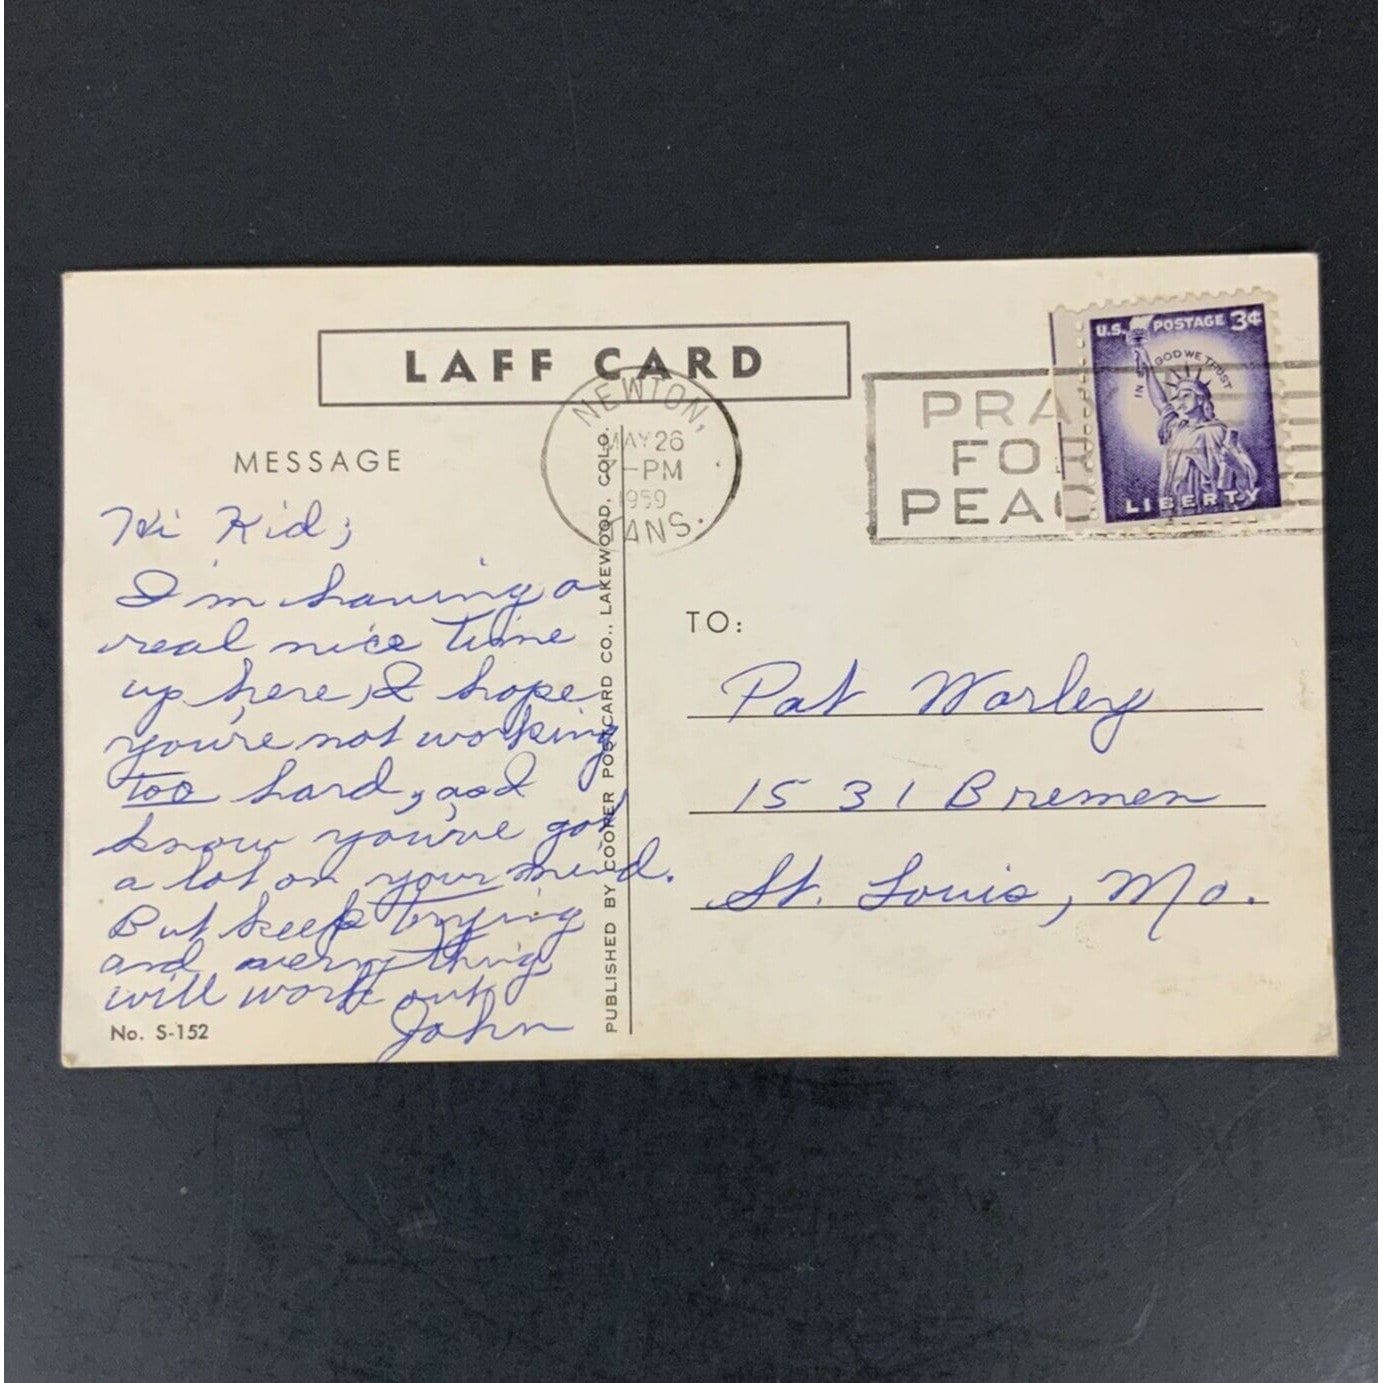 LAFF CARD
MESSAGE
Hi Kid;
I'm having a
real nice time
up here, I hope
you're not working
too hard, as I
know you've got
a lot on your mind.
But keep trying
and everything
will work out
John
No. S-152
PUBLISHED BY COOPER POSTCARD CO., LAKEWOOD, COLO.
NEWTON,
MAY 26
PM
1959
KANS.
PRA
FOR
PEAC
U.S. POSTAGE 3¢
IN GOD WE TRUST
LIBERTY
TO:
Pat Worley
1531 Bremen
St. Louis, Mo.